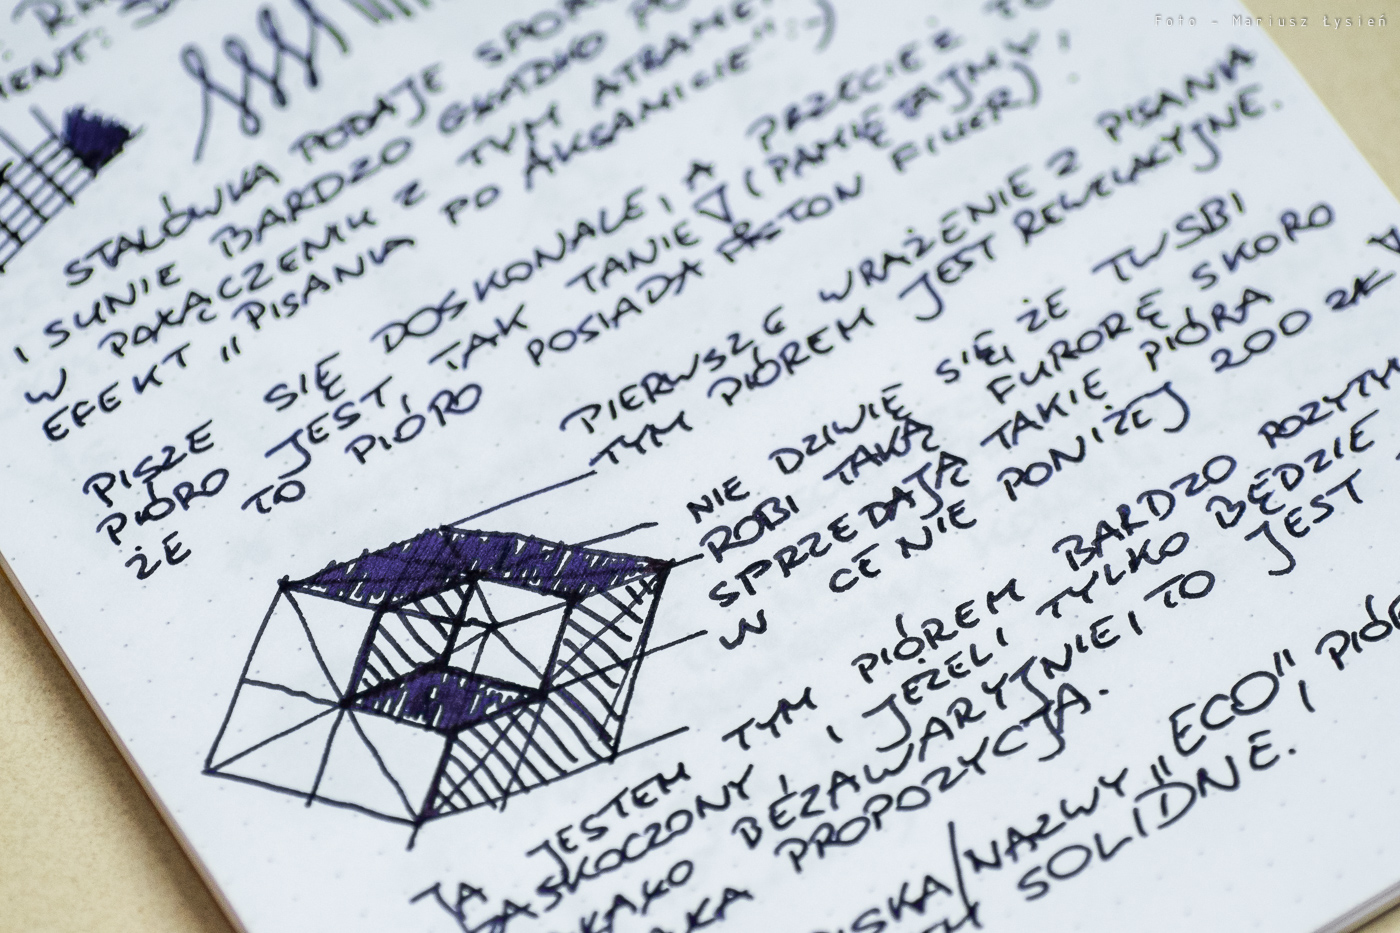 Foto - Mariusz Łysień
STALÓWKA PODAJE
I SUNIE BARDZO GŁADKO
W POŁĄCZENIU Z TYM
EFEKT "PISANIA PO AKSAMICIE" :)
PISZE SIĘ DOSKONALE, A PRZECIEŻ TO
PIÓRO JEST, TAK TANIE (PAMIĘTAJMY,
ŻE TO PIÓRO POSIADA PISTON FILLER)
PIERWSZE WRAŻENIE Z PISANIA
TYM PIÓREM JEST REWELACYJNE.
NIE DZIWIĘ SIĘ, ŻE TWSBI
ROBI TAKĄ FURORĘ SKORO
SPRZEDAJĄ TAKIE PIÓRA
W CENIE PONIŻEJ 200 ZŁ
JESTEM TYM PIÓREM BARDZO
ZASKOCZONY I JEŻELI TYLKO BĘDZIE
BEZAWARYJNIE, TO JEST
PROPOZYCJA.
NAZWY "ECO",
SOLIDNE.